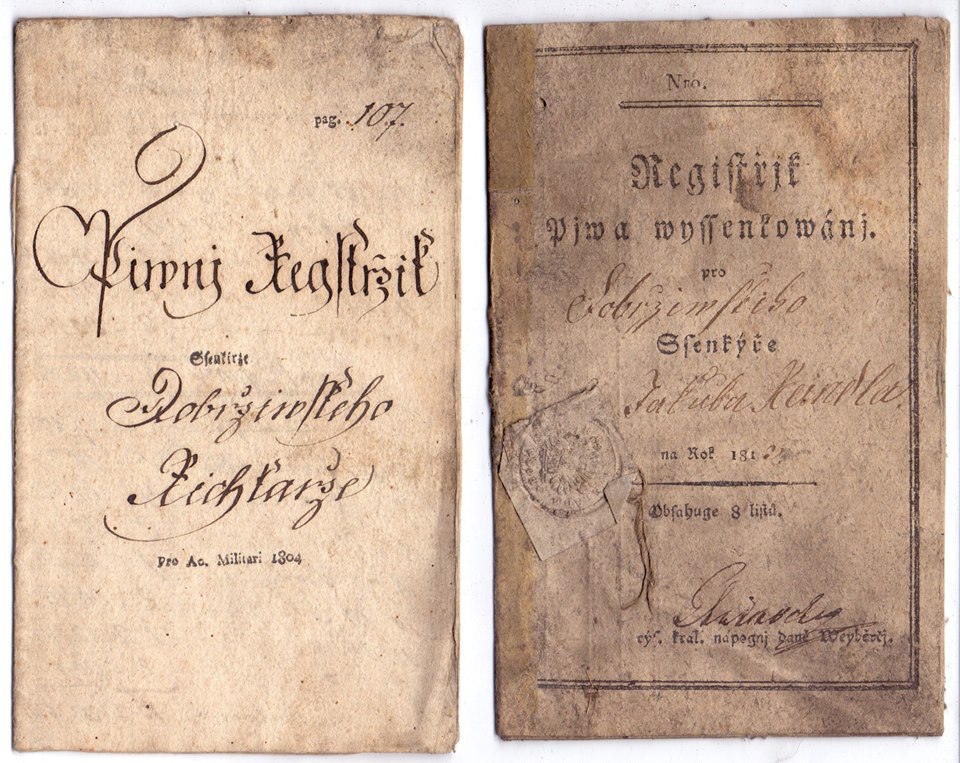 pag. 107.
Piwnj Regstržik
Ssenkirže
Dobržiwskeho
Richtarže
Pro Ao. Militari 1804
Nro.
Regiſtřjk
Pjwa wyſſenkowánj.
pro
Dobržiwskeho
Sſenkýře
Jakuba
na Rok 181
Obſahuge 8 liſtů.
cýſ. kral. nápognj daně Weyběrčj.